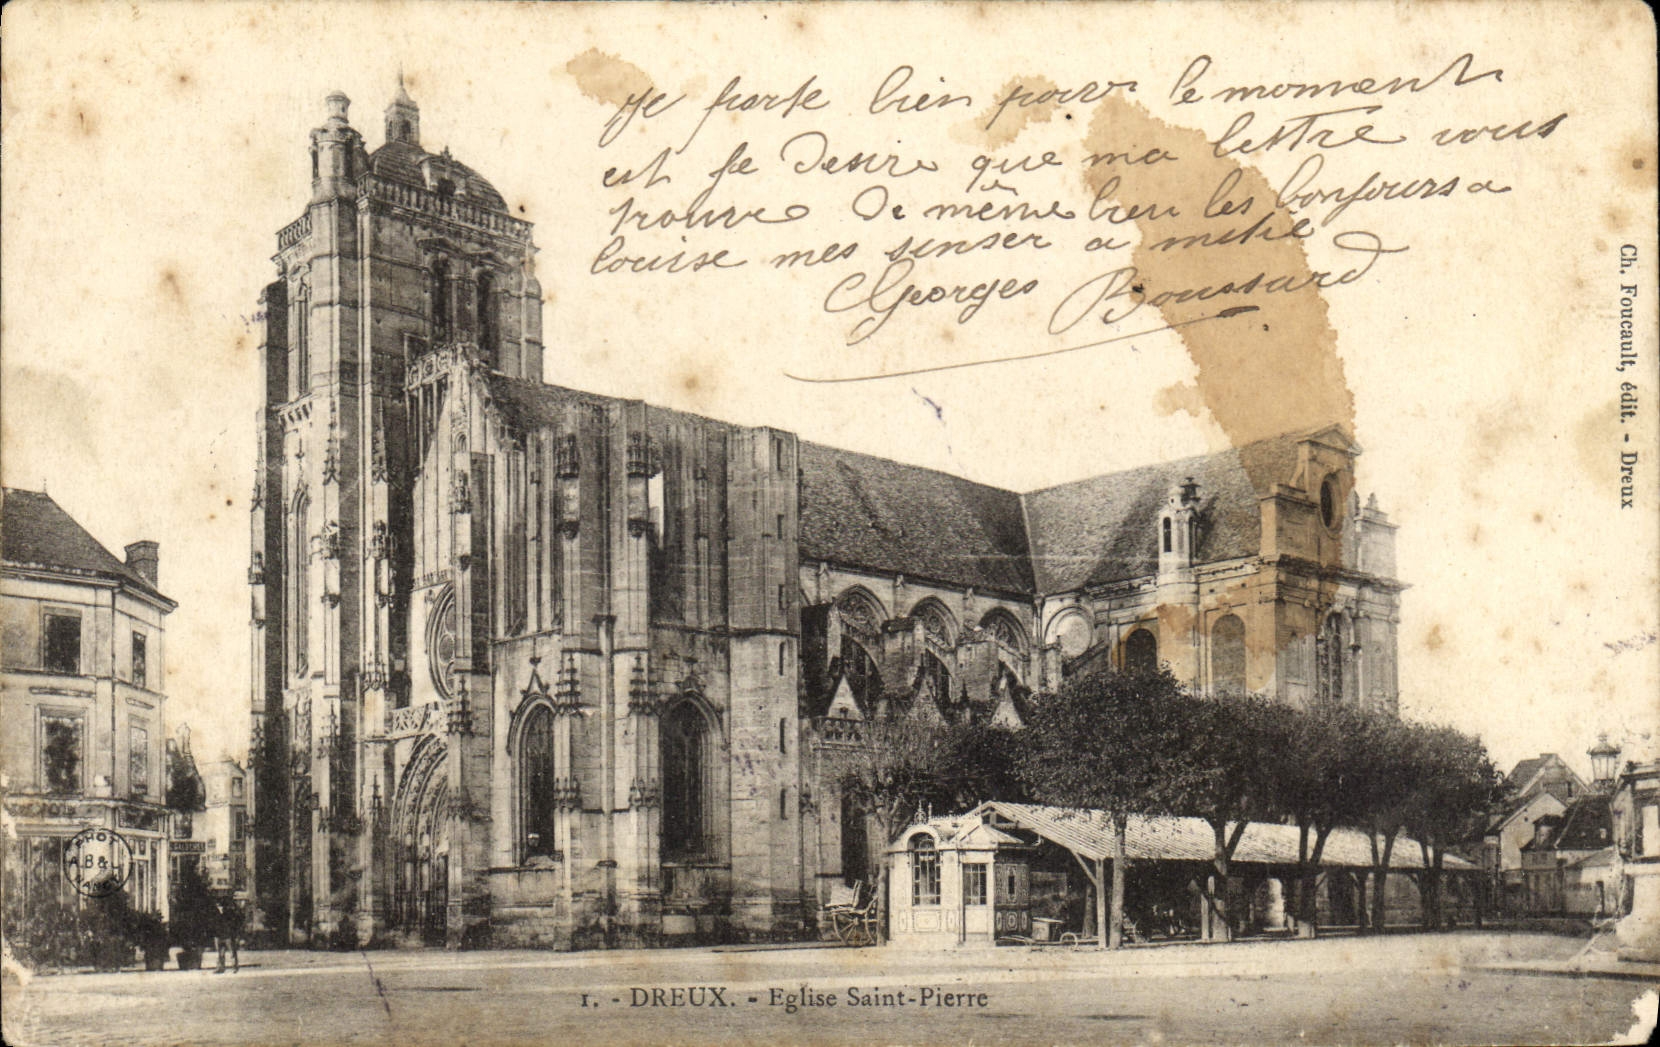 Je porte bien pour le moment
est je desire que ma lettre vous
trouve de même bien les bonjours a
louise mes sinser a
Georges Boussard
Ch. Foucault, édit. - Dreux
PHOT
A.B & 
NANCY
1. - DREUX. - Eglise Saint-Pierre